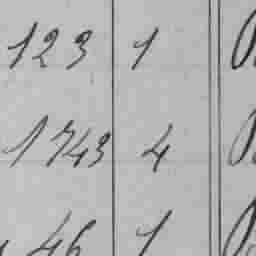 123 1
1743 4
46 1